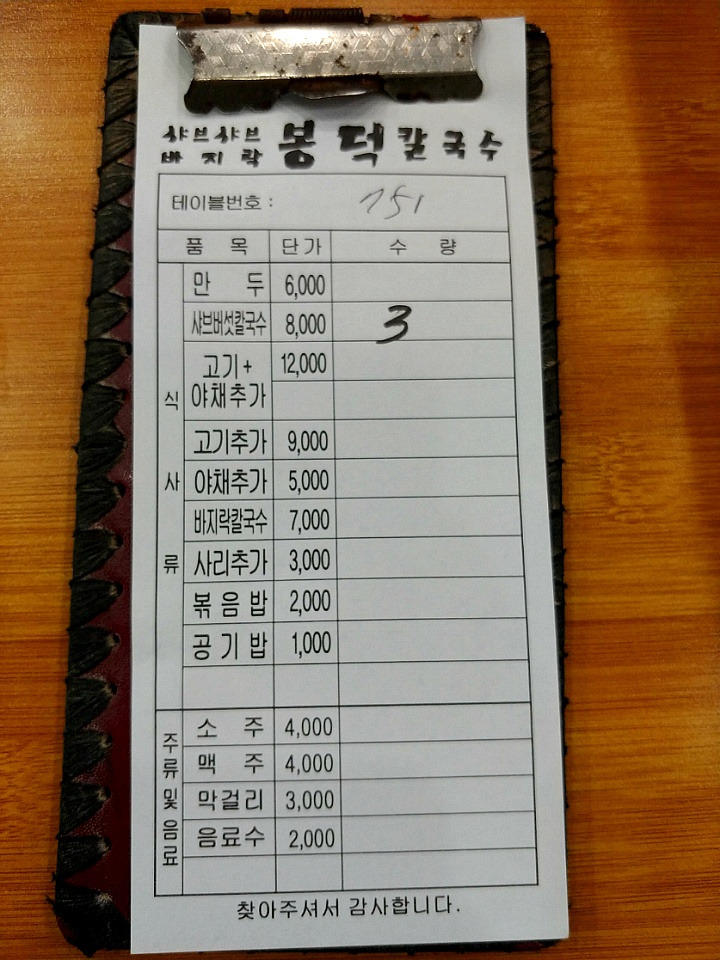 샤브샤브 바지락 봉덕칼국수
테이블번호 : 151
품 목 단가 수 량
식사류
만 두 6,000
샤브버섯칼국수 8,000 3
고기+ 12,000
야채추가
고기추가 9,000
야채추가 5,000
바지락칼국수 7,000
사리추가 3,000
볶음밥 2,000
공기밥 1,000
주류 및 음료
소 주 4,000
맥 주 4,000
막걸리 3,000
음료수 2,000
찾아주셔서 감사합니다.